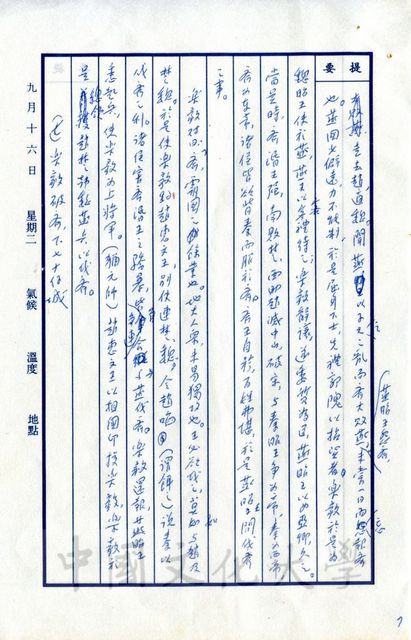 提要
去趙適魏。聞燕昭王以子之之亂而齊大敗燕，未嘗一日而忘報齊
也。燕國小，僻遠，力不能制，於是屈身下士，先禮郭隗以招賢者。樂毅於是為
魏昭王使於燕，燕王以客禮待之。樂毅辭讓，遂委質為臣，燕昭王以為亞卿，久之。
當是時，齊湣王強，南敗楚，西助趙滅中山，破宋，与秦昭王争為帝，
諸侯皆欲背秦而服於齊。齊王自矜，百姓弗堪，於是燕昭王問伐齊
之事。
樂毅對曰：齊，霸國之餘業也，地大人衆，未易獨攻也。王必欲伐之，莫如与趙及
楚魏。於是使樂毅約趙惠文王，別使連楚、魏。令趙啗（謂餌之）說秦以
伐齊之利。諸侯害齊湣王之驕暴，皆争合從与燕伐齊。樂毅還報，燕昭王
悉起兵，使樂毅為上將軍。（猶元帥）趙惠文王以相國印授樂毅，樂毅於
是總領趙楚韓魏燕之兵以伐齊。
樂毅破齊，下七十餘城
九月十六日 星期二 氣候 溫度 地點
中國文化大學
7